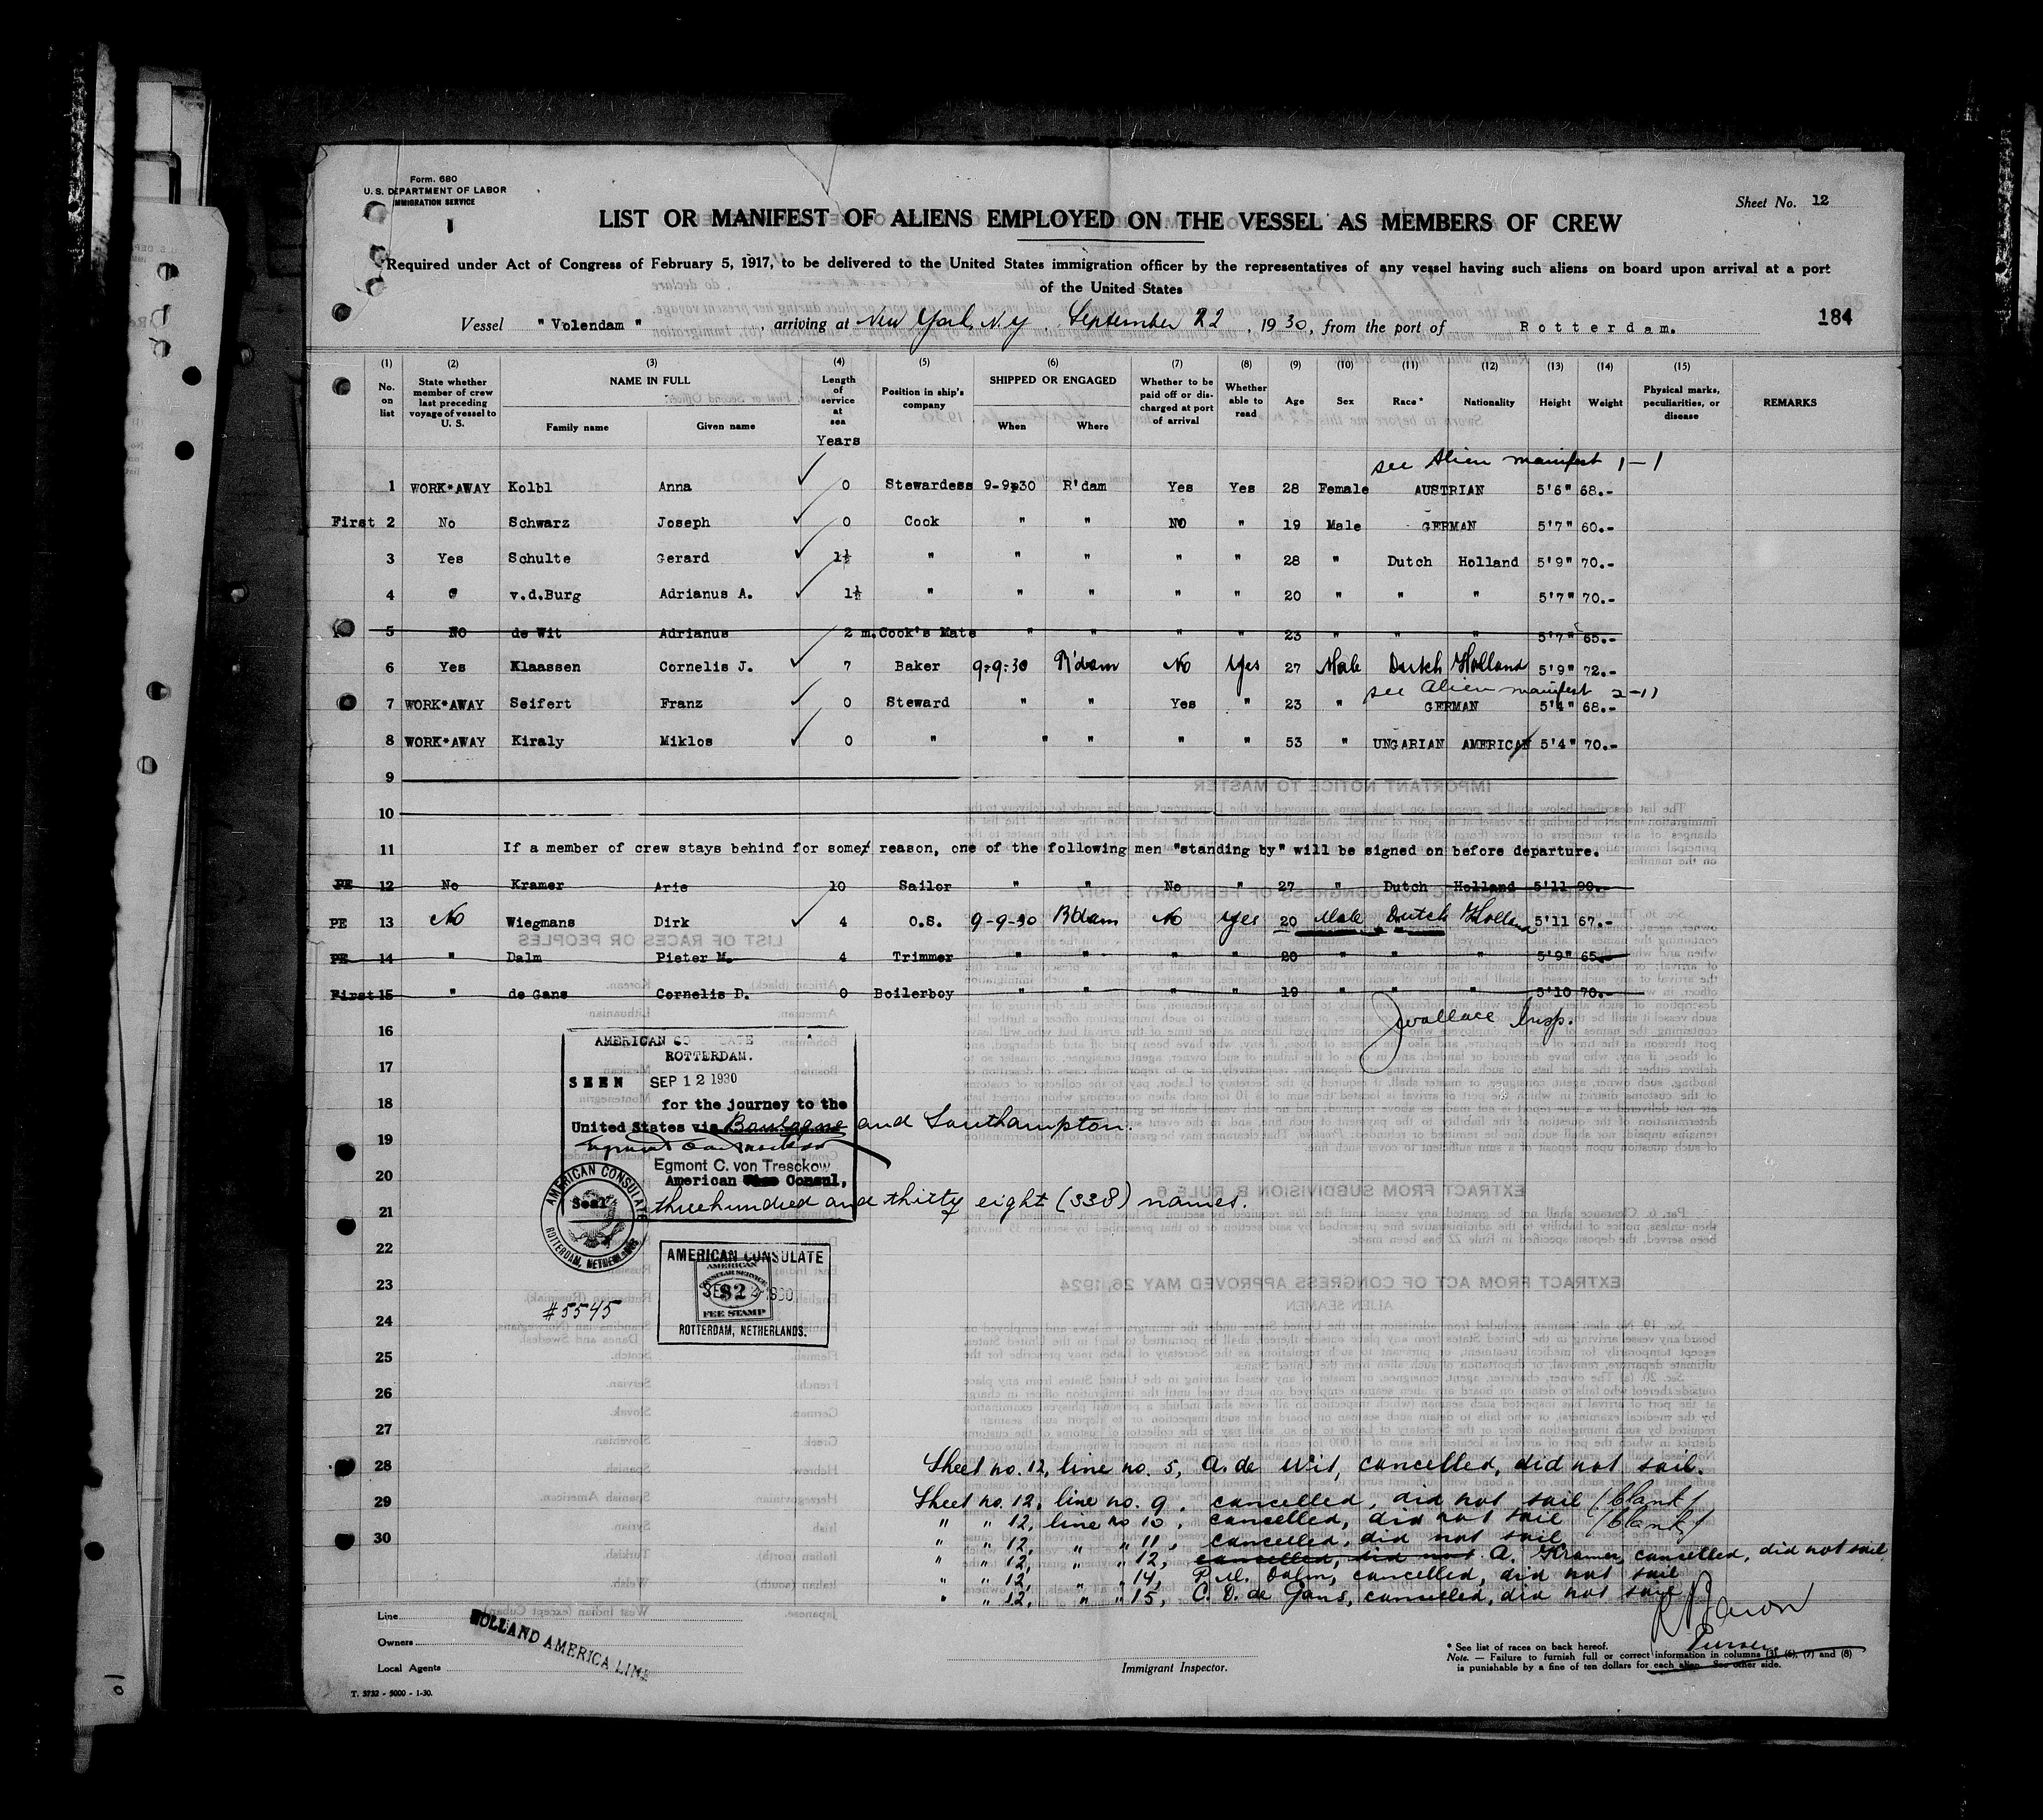 Form. 680
U. S. DEPARTMENT OF LABOR
IMMIGRATION SERVICE
Sheet No. 12
LIST OR MANIFEST OF ALIENS EMPLOYED ON THE VESSEL AS MEMBERS OF CREW
Required under Act of Congress of February 5, 1917, to be delivered to the United States immigration officer by the representatives of any vessel having such aliens on board upon arrival at a port
of the United States
Vessel "Volendam", arriving at New York, N.Y. September 22, 1930, from the port of Rotterdam. 184
(1) (2) (3) (4) (5) (6) (7) (8) (9) (10) (11) (12) (13) (14) (15)
No. on list State whether member of crew last preceding voyage of vessel to U. S. NAME IN FULL Family name Given name Length of service at sea Years Position in ship's company SHIPPED OR ENGAGED When Where Whether to be paid off or discharged at port of arrival Whether able to read Age Sex Race* Nationality Height Weight Physical marks, peculiarities, or disease REMARKS
see Alien manifest 1-1
1 WORK*AWAY Kolbl Anna 0 Stewardess 9-9-30 R'dam Yes Yes 28 Female AUSTRIAN 5'6" 68.-
First 2 No Schwarz Joseph 0 Cook " " NO " 19 Male GERMAN 5'7" 60.-
3 Yes Schulte Gerard 1½ " " " " " 28 " Dutch Holland 5'9" 70.-
4 " v.d.Burg Adrianus A. 1½ " " " " " 20 " " " 5'7" 70.-
5 NO de Wit Adrianus 2 m. Cook's Mate " " " " 23 " " " 5'7" 65.-
6 Yes Klaassen Cornelis J. 7 Baker 9-9-30 R'dam No Yes 27 Male Dutch Holland 5'9" 72.-
see Alien manifest 2-11
7 WORK*AWAY Seifert Franz 0 Steward " " Yes " 23 " GERMAN 5'4" 68.-
8 WORK*AWAY Kiraly Miklos 0 " " " " " 53 " UNGARIAN AMERICAN 5'4" 70.-
9
10
11 If a member of crew stays behind for some reason, one of the following men "standing by" will be signed on before departure.
PE 12 No Kramer Arie 10 Sailor " " No " 27 " Dutch Holland 5'11 90.-
PE 13 No Wiegmans Dirk 4 O.S. 9-9-30 R'dam No Yes 20 Male Dutch Holland 5'11 67.-
PE 14 " Dalm Pieter M. 4 Trimmer " " " " 20 " " " 5'9" 65.-
First 15 " de Gans Cornelis D. 0 Boilerboy " " " " 19 " " " 5'10 70.-
JWallace Insp.
16
17
18
19
20
21
22
23
24
25
26
27
28
29
30
AMERICAN CONSULATE
ROTTERDAM.
SEEN SEP 12 1930
for the journey to the
United States via Boulogne and Southampton.
Egmont C. von Tresckow
American Vice Consul,
Seal
threehundred and thitty eight (338) names.
AMERICAN CONSULATE
ROTTERDAM, NETHERLANDS
AMERICAN CONSULATE
AMERICAN
CONSULAR SERVICE
$2
FEE STAMP
ROTTERDAM, NETHERLANDS.
#5545
Sheet no. 12, line no. 5, A. de Wit, cancelled, did not sail.
Sheet no. 12, line no. 9, cancelled, did not sail (blank)
" " 12, line no 10, cancelled, did not sail (blank)
" " 12, " " 11, cancelled, did not sail
" " 12, " " 12, cancelled, did not A. Kramer, cancelled, did not sail.
" " 12, " " 14, P.M. Dalm, cancelled, did not sail
" " 12, " " 15, C. D. de Gans, cancelled, did not sail
Purser
Line
Owners
Local Agents
HOLLAND AMERICA LINE
Immigrant Inspector.
* See list of races on back hereof.
Note. — Failure to furnish full or correct information in columns (3), (6), (7) and (8)
is punishable by a fine of ten dollars for each alien. See other side.
T. 3732 - 5000 - 1-30.